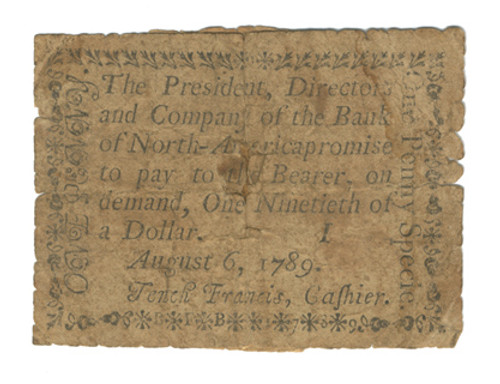 The President, Directors
and Company of the Bank
of North-America promise
to pay to the Bearer, on
demand, One Ninetieth of
a Dollar. I
August 6, 1789.
Tench Francis, Cashier.
One Penny Specie.
B F B 7 8 9